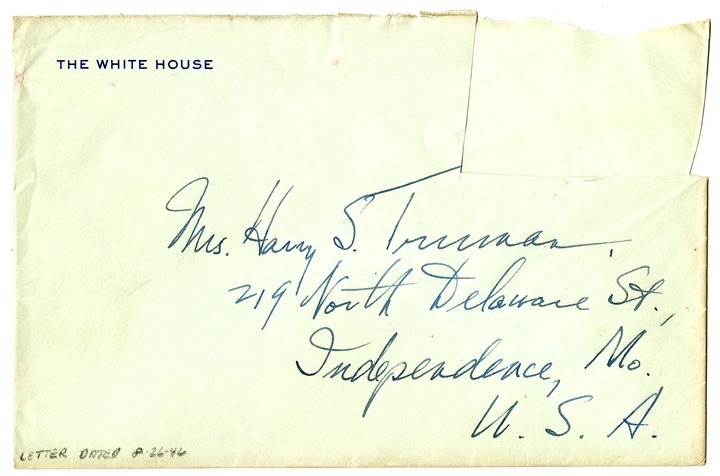 THE WHITE HOUSE
Mrs. Harry S. Truman,
219 North Delaware St.,
Independence, Mo.
U. S. A.
LETTER DATED 8-26-46